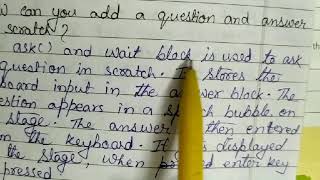 can you add a question and answer
scratch?
ask() and wait block is used to ask
question in scratch. It stores the
board input in the answer block. The
stion appears in a speech bubble on
stage. The answer is then entered
the keyboard. It is displayed
the stage, when enter key
pressed